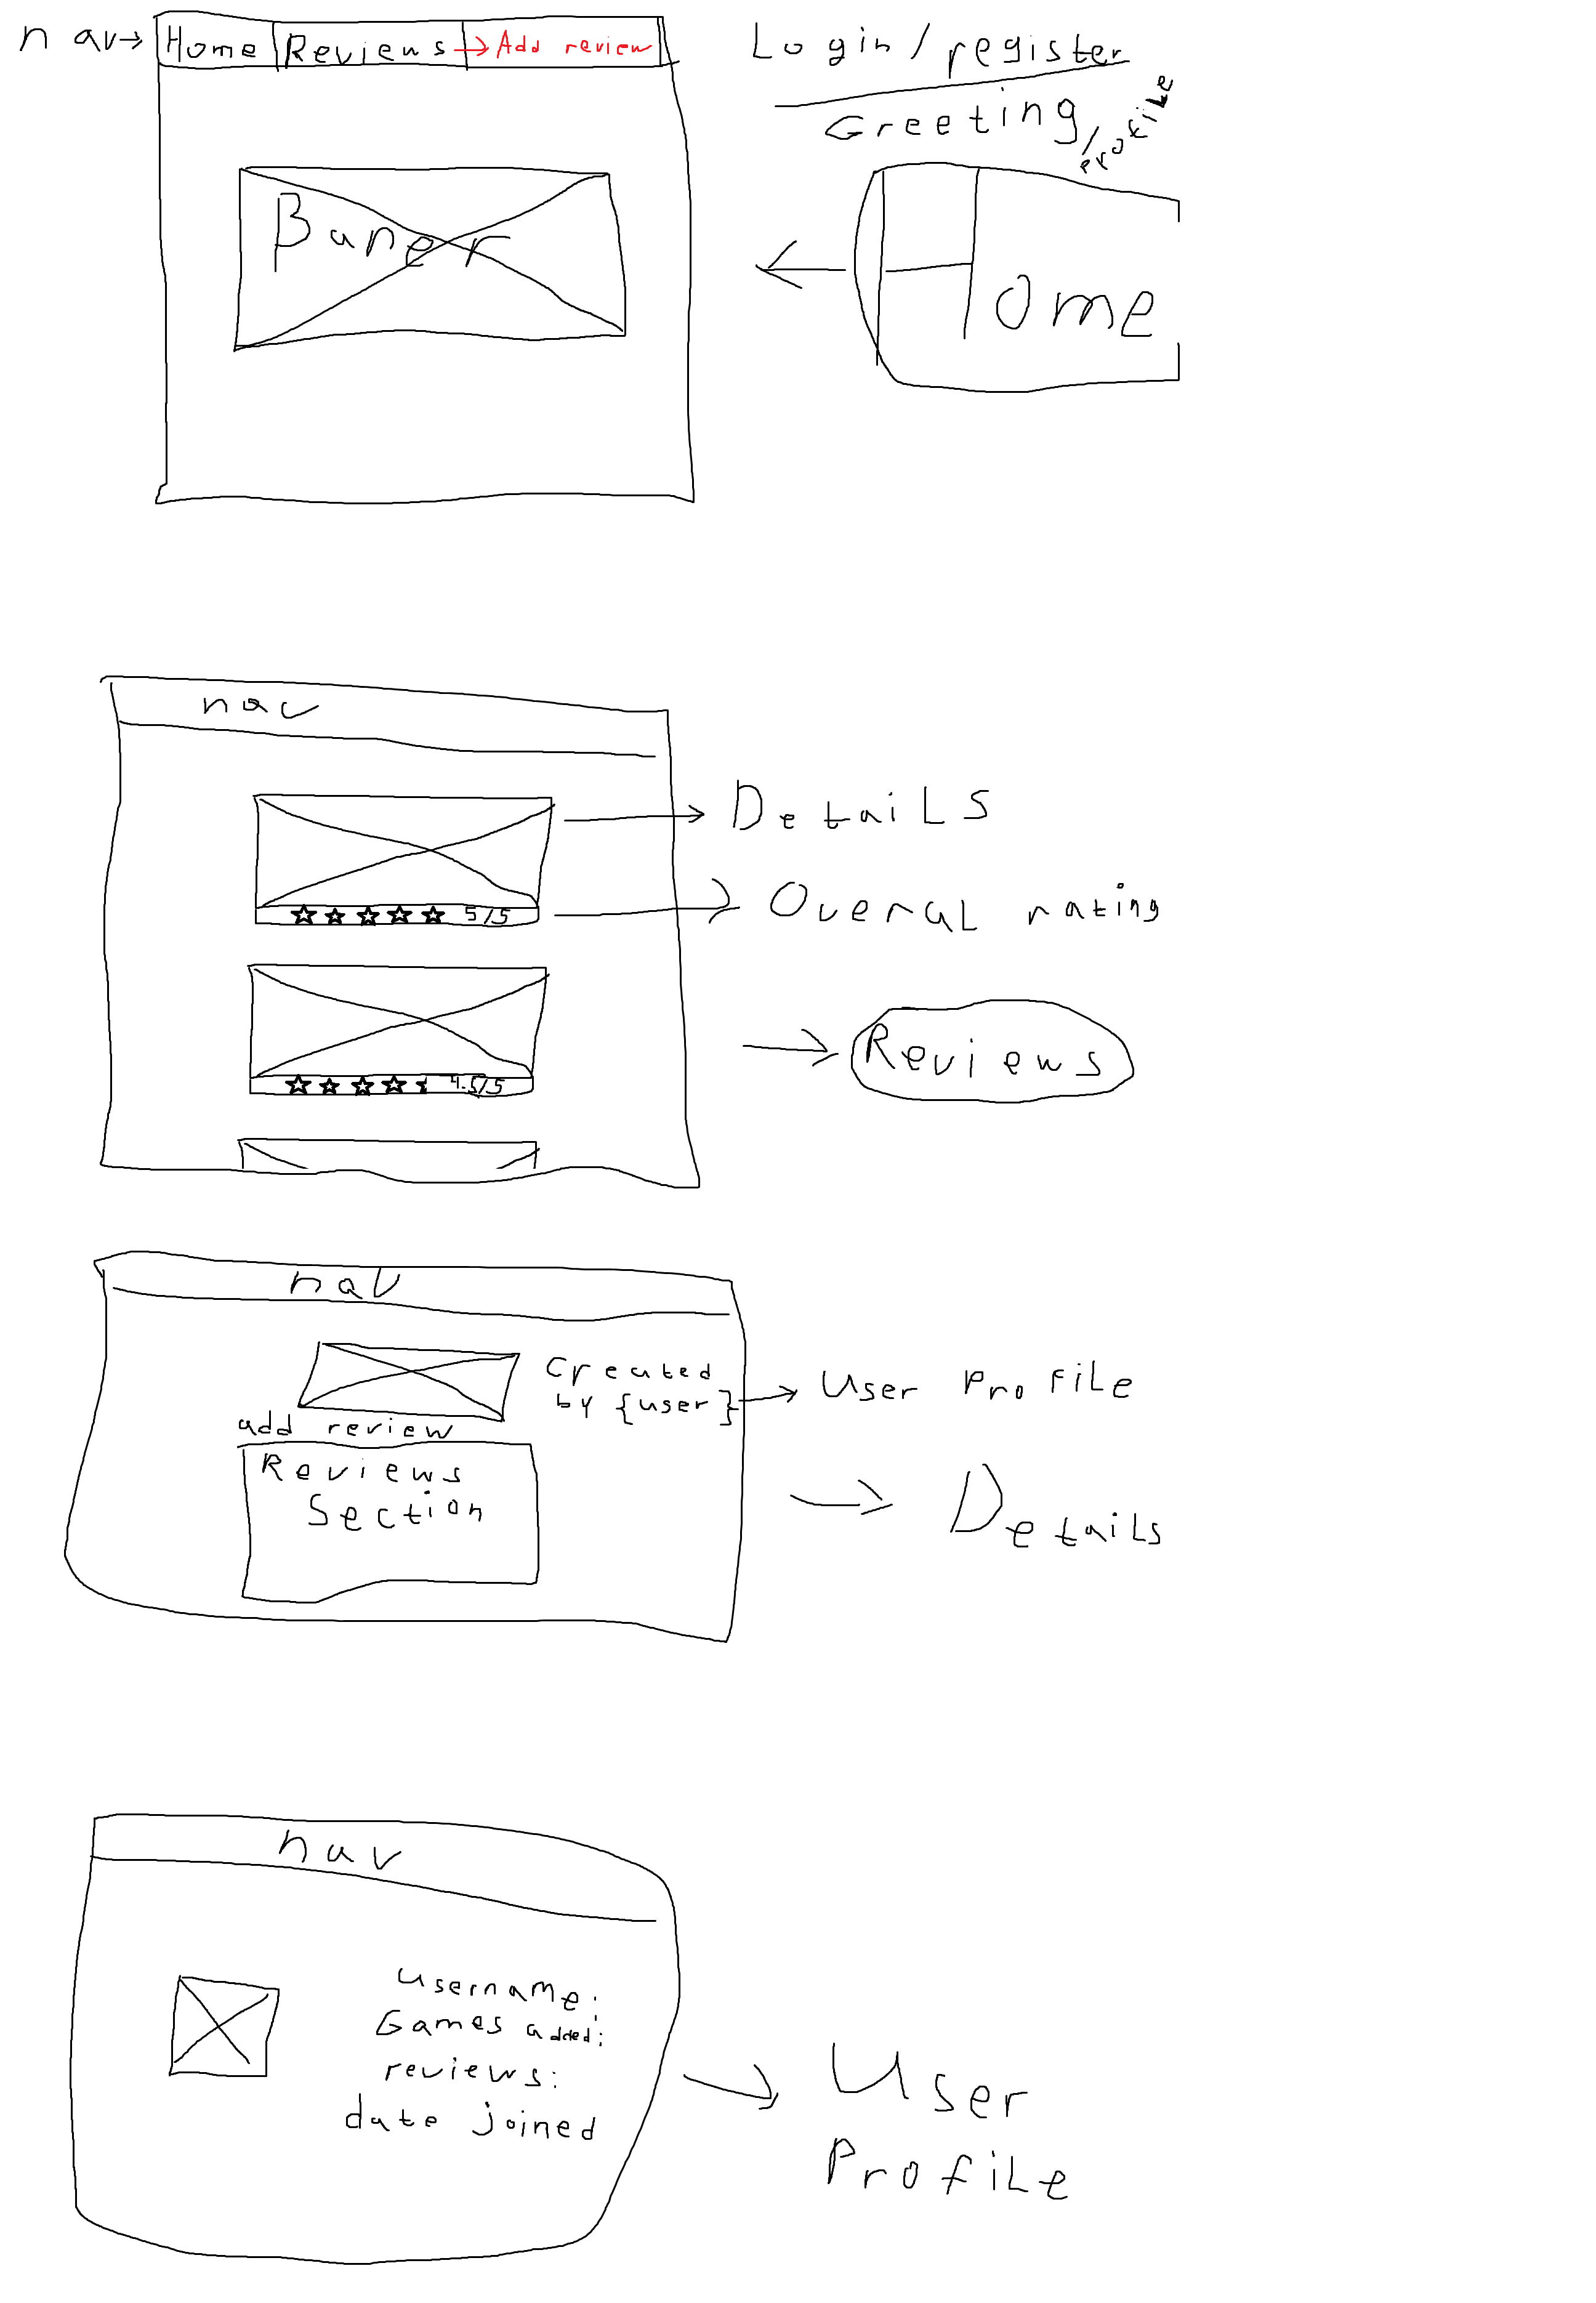 nav Home Reviews Add review
Login/register
Greeting/profile
Baner
Home
nav
DetaiLS
5/5
OveraL rating
Reviews
4.5/5
nav
Created
by {user}
User ProfiLe
add review
Reviews
Section
DetaiLs
nav
username:
Games added:
reviews:
date joined
User
ProfiLe